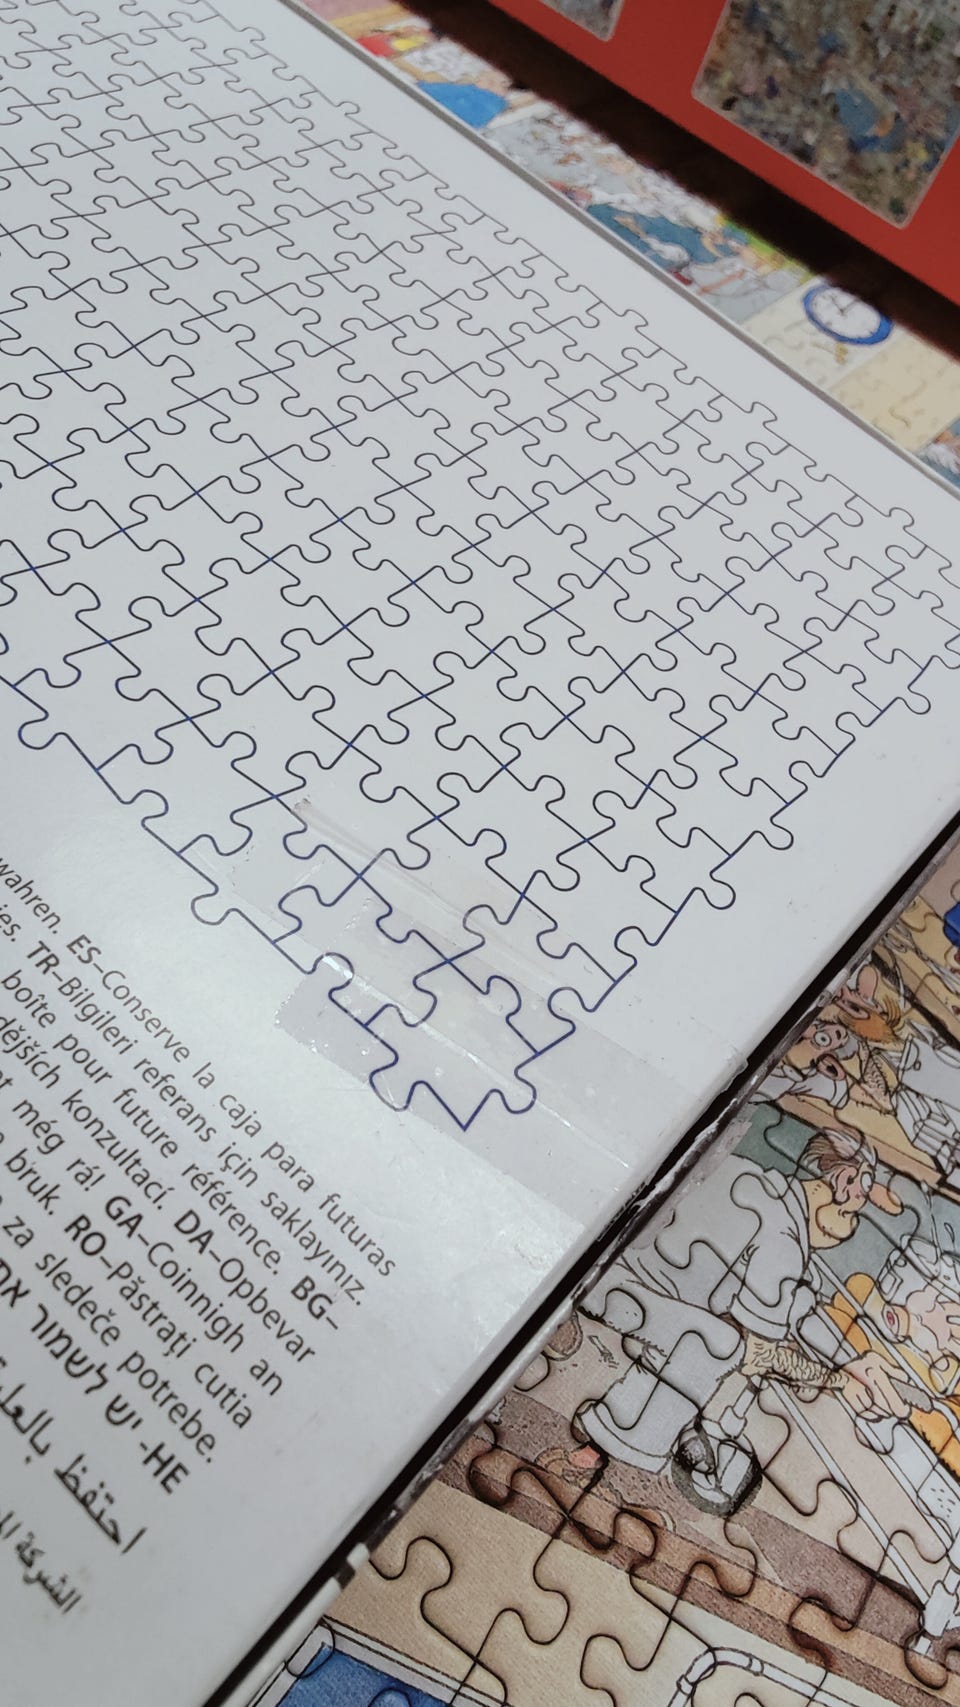 wahren. ES–Conserve la caja para futuras
ies. TR–Bilgileri referans için saklayınız.
boîte pour future référence. BG–
dějších konzultací. DA–Opbevar
et még rá! GA–Coinnigh an
bruk. RO–Păstrați cutia
za sledeče potrebe.
HE- יש לשמור את
احتفظ بالعل
الشركة